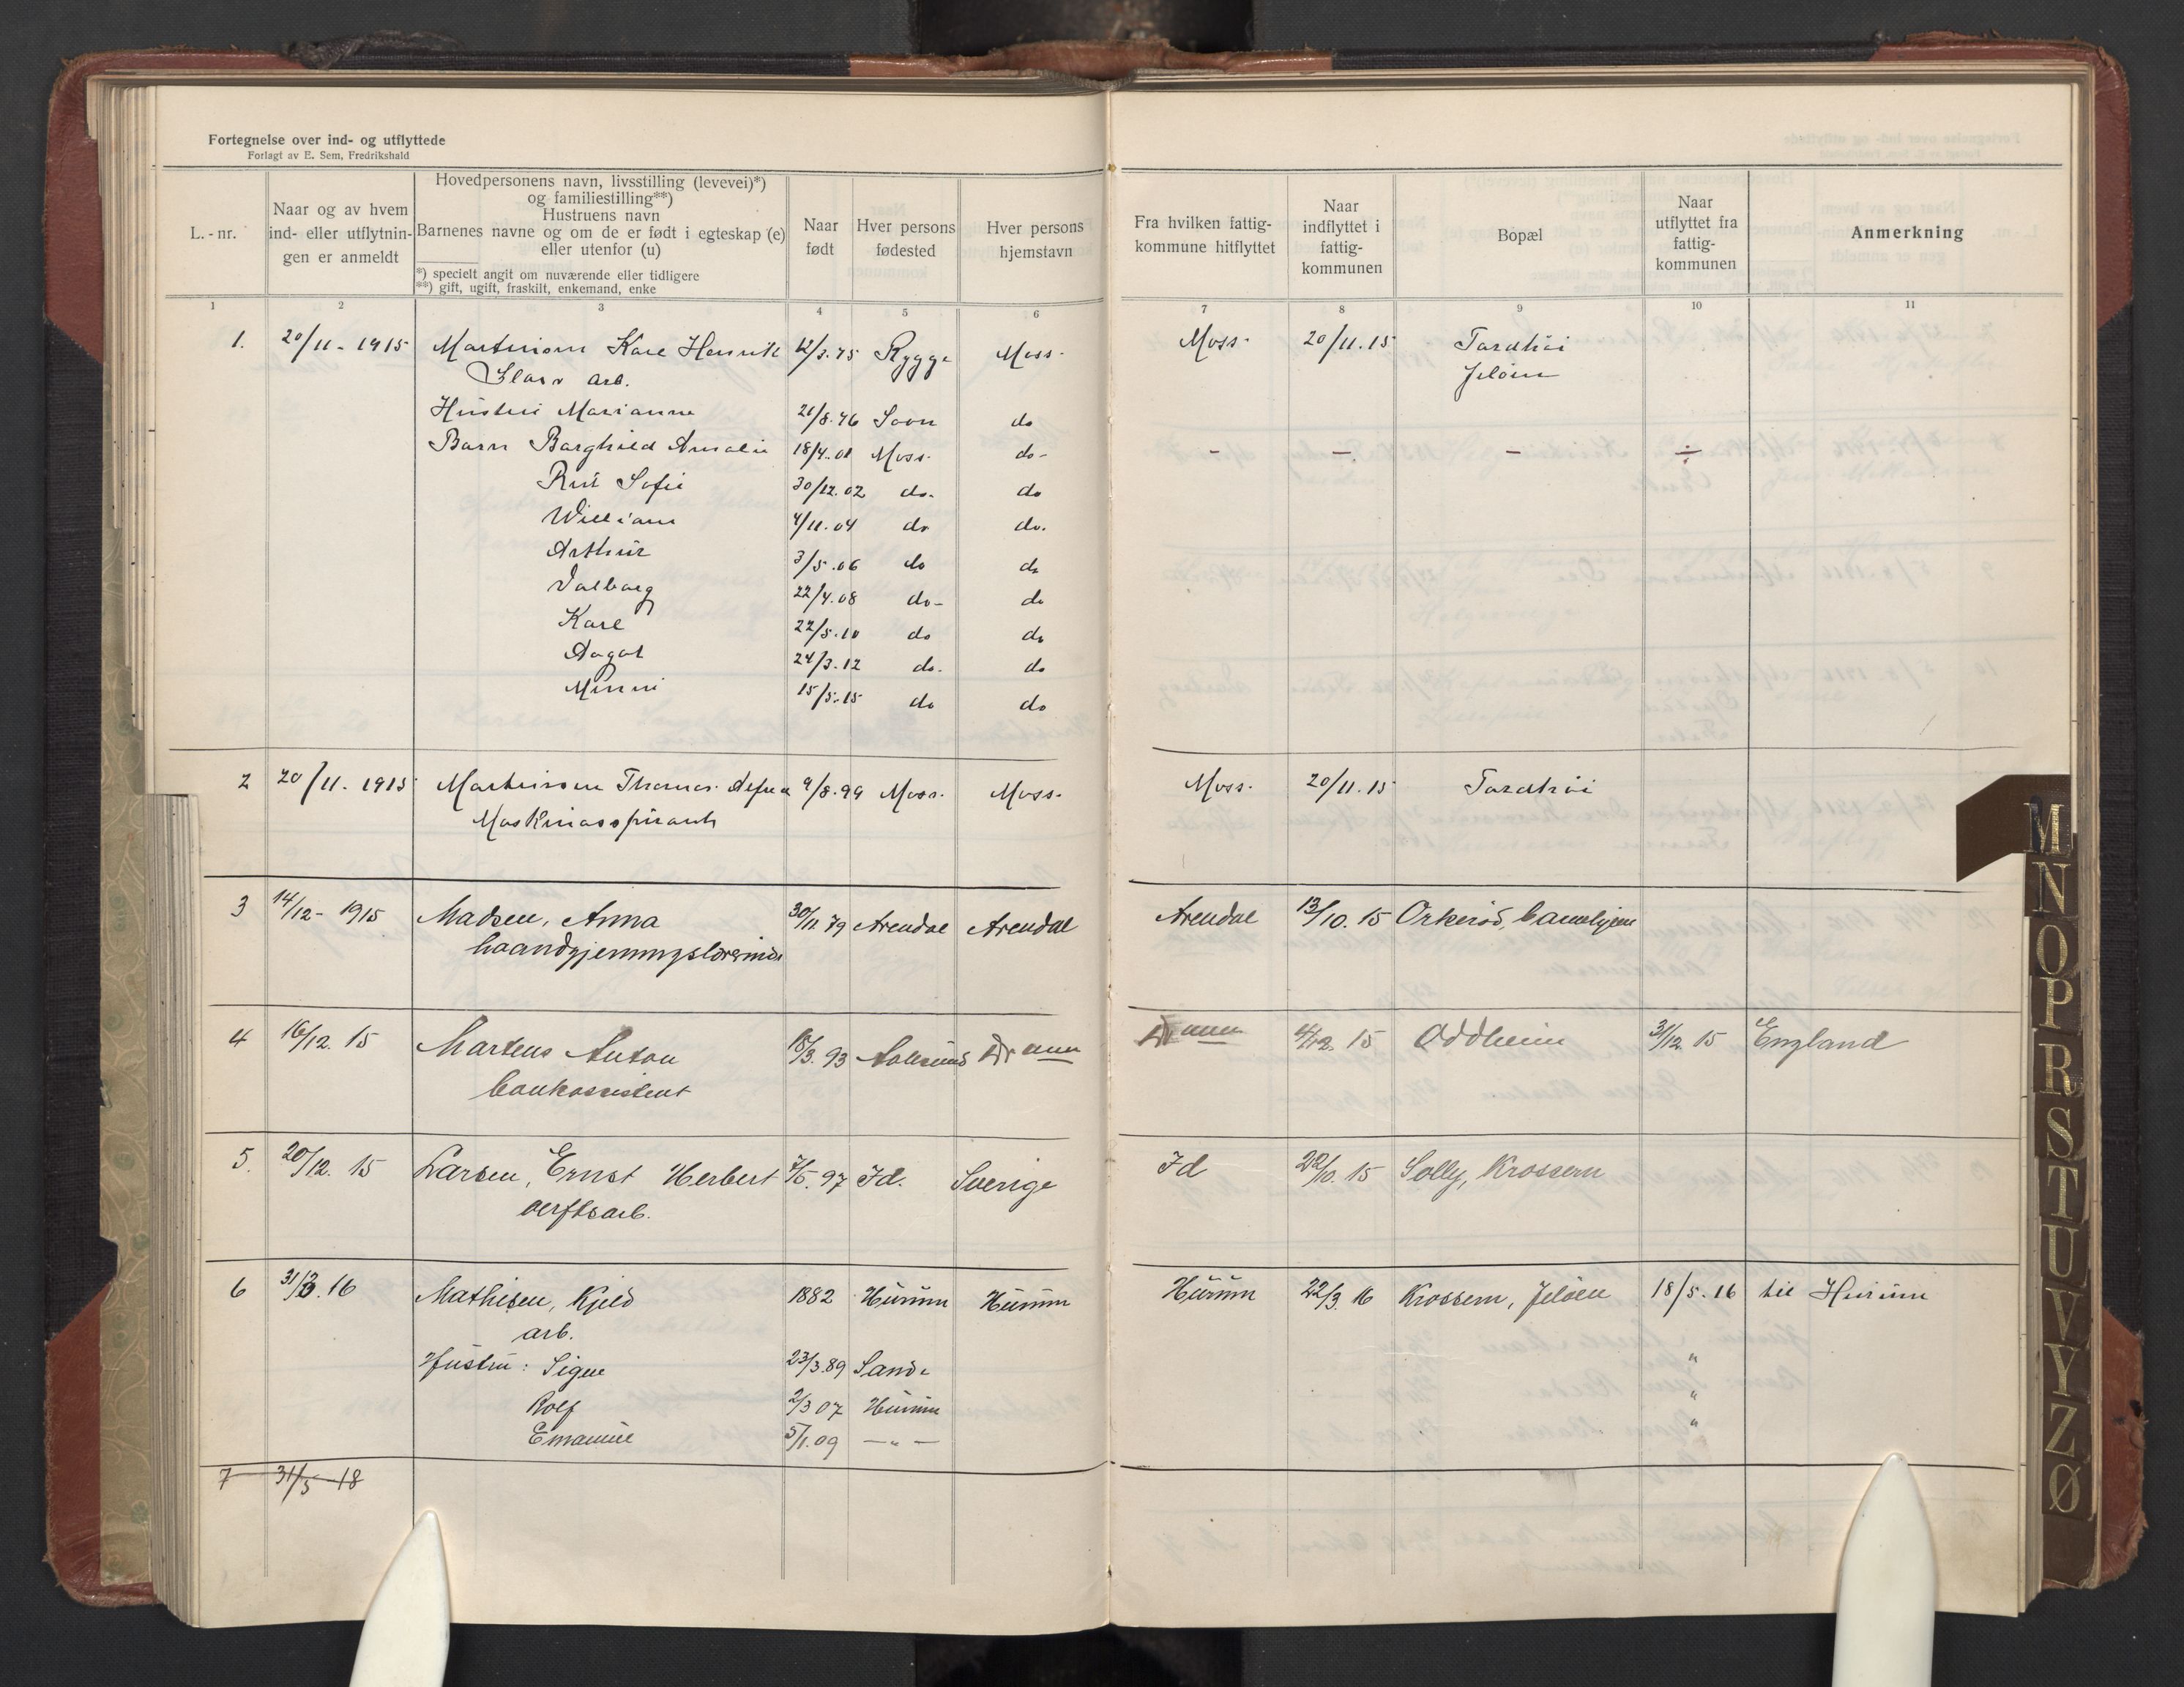 Fortegnelse over ind- og utflyttede
Forlagt av E. Sem, Fredrikshald
L.-nr.
Naar og av hvem
ind- eller utflytnin-
gen er anmeldt
Hovedpersonens navn, livsstilling (levevei)*)
og familiestilling**)
Hustruens navn
Barnenes navne og om de er født i egteskap (e)
eller utenfor (u)
*) specielt angit om nuværende eller tidligere
**) gift, ugift, fraskilt, enkemand, enke
Naar
født
Hver persons
fødested
Hver persons
hjemstavn
Fra hvilken fattig-
kommune hitflyttet
Naar
indflyttet i
fattig-
kommunen
Bopæl
Naar
utflyttet fra
fattig-
kommunen
Anmerkning
1 2 3 4 5 6 7 8 9 10 11
1. 20/11 - 1915 Martinsen Karl Henrik 12/3.75 Rygge Moss. Moss. 20/11.15
arb. Jeløen
Hustru Marianne 21/8.76 Soon do
Barn Borghild Amalie 18/4.01 Moss. do - - - - ÷
Rut Sofie 30/12.02 do. do
William 4/11.04 do do.
Arthur 3/5.06 do do
Valborg 22/4.08 do - do
Karl 22/5.10 do do
Aagot 24/3.12 do. do
Minni 15/5.15 do do
2 20/11. 1915 Martinsen Thomas 9/8.99 Moss. Moss. Moss. 20/11.15
Maskinaspirant
3 14/12 - 1915 Madsen, Anna 30/11 79 Arendal Arendal Arendal 13/10. 15 Orkerød, barnehjem
haandgjerningslærerinde
4 16/12. 15 Martens Anton 18/3. 93 Aalesund Drammen Drammen 4/12. 15 Oddheim 31/12. 15 England
bankassistent
5. 20/12. 15 Larsen, Ernst Herbert 7/5. 97 Id. Sverige Id 22/10. 15 Solly, Krossern
verftsarb.
6 31/3.16 Mathisen, Kjeld 1882 Hurum Hurum Hurum 22/3. 16 Krossern, Jeløen 18/5.16 til Hurum
arb.
Hustru: Signe 23/3.89 Sande "
Rolf 2/3 07 Hurum "
Emanuel 5/1.09 — " — "
7 31/5 18
M
N
O
P
R
S
T
U
V
Y
Z
Ø